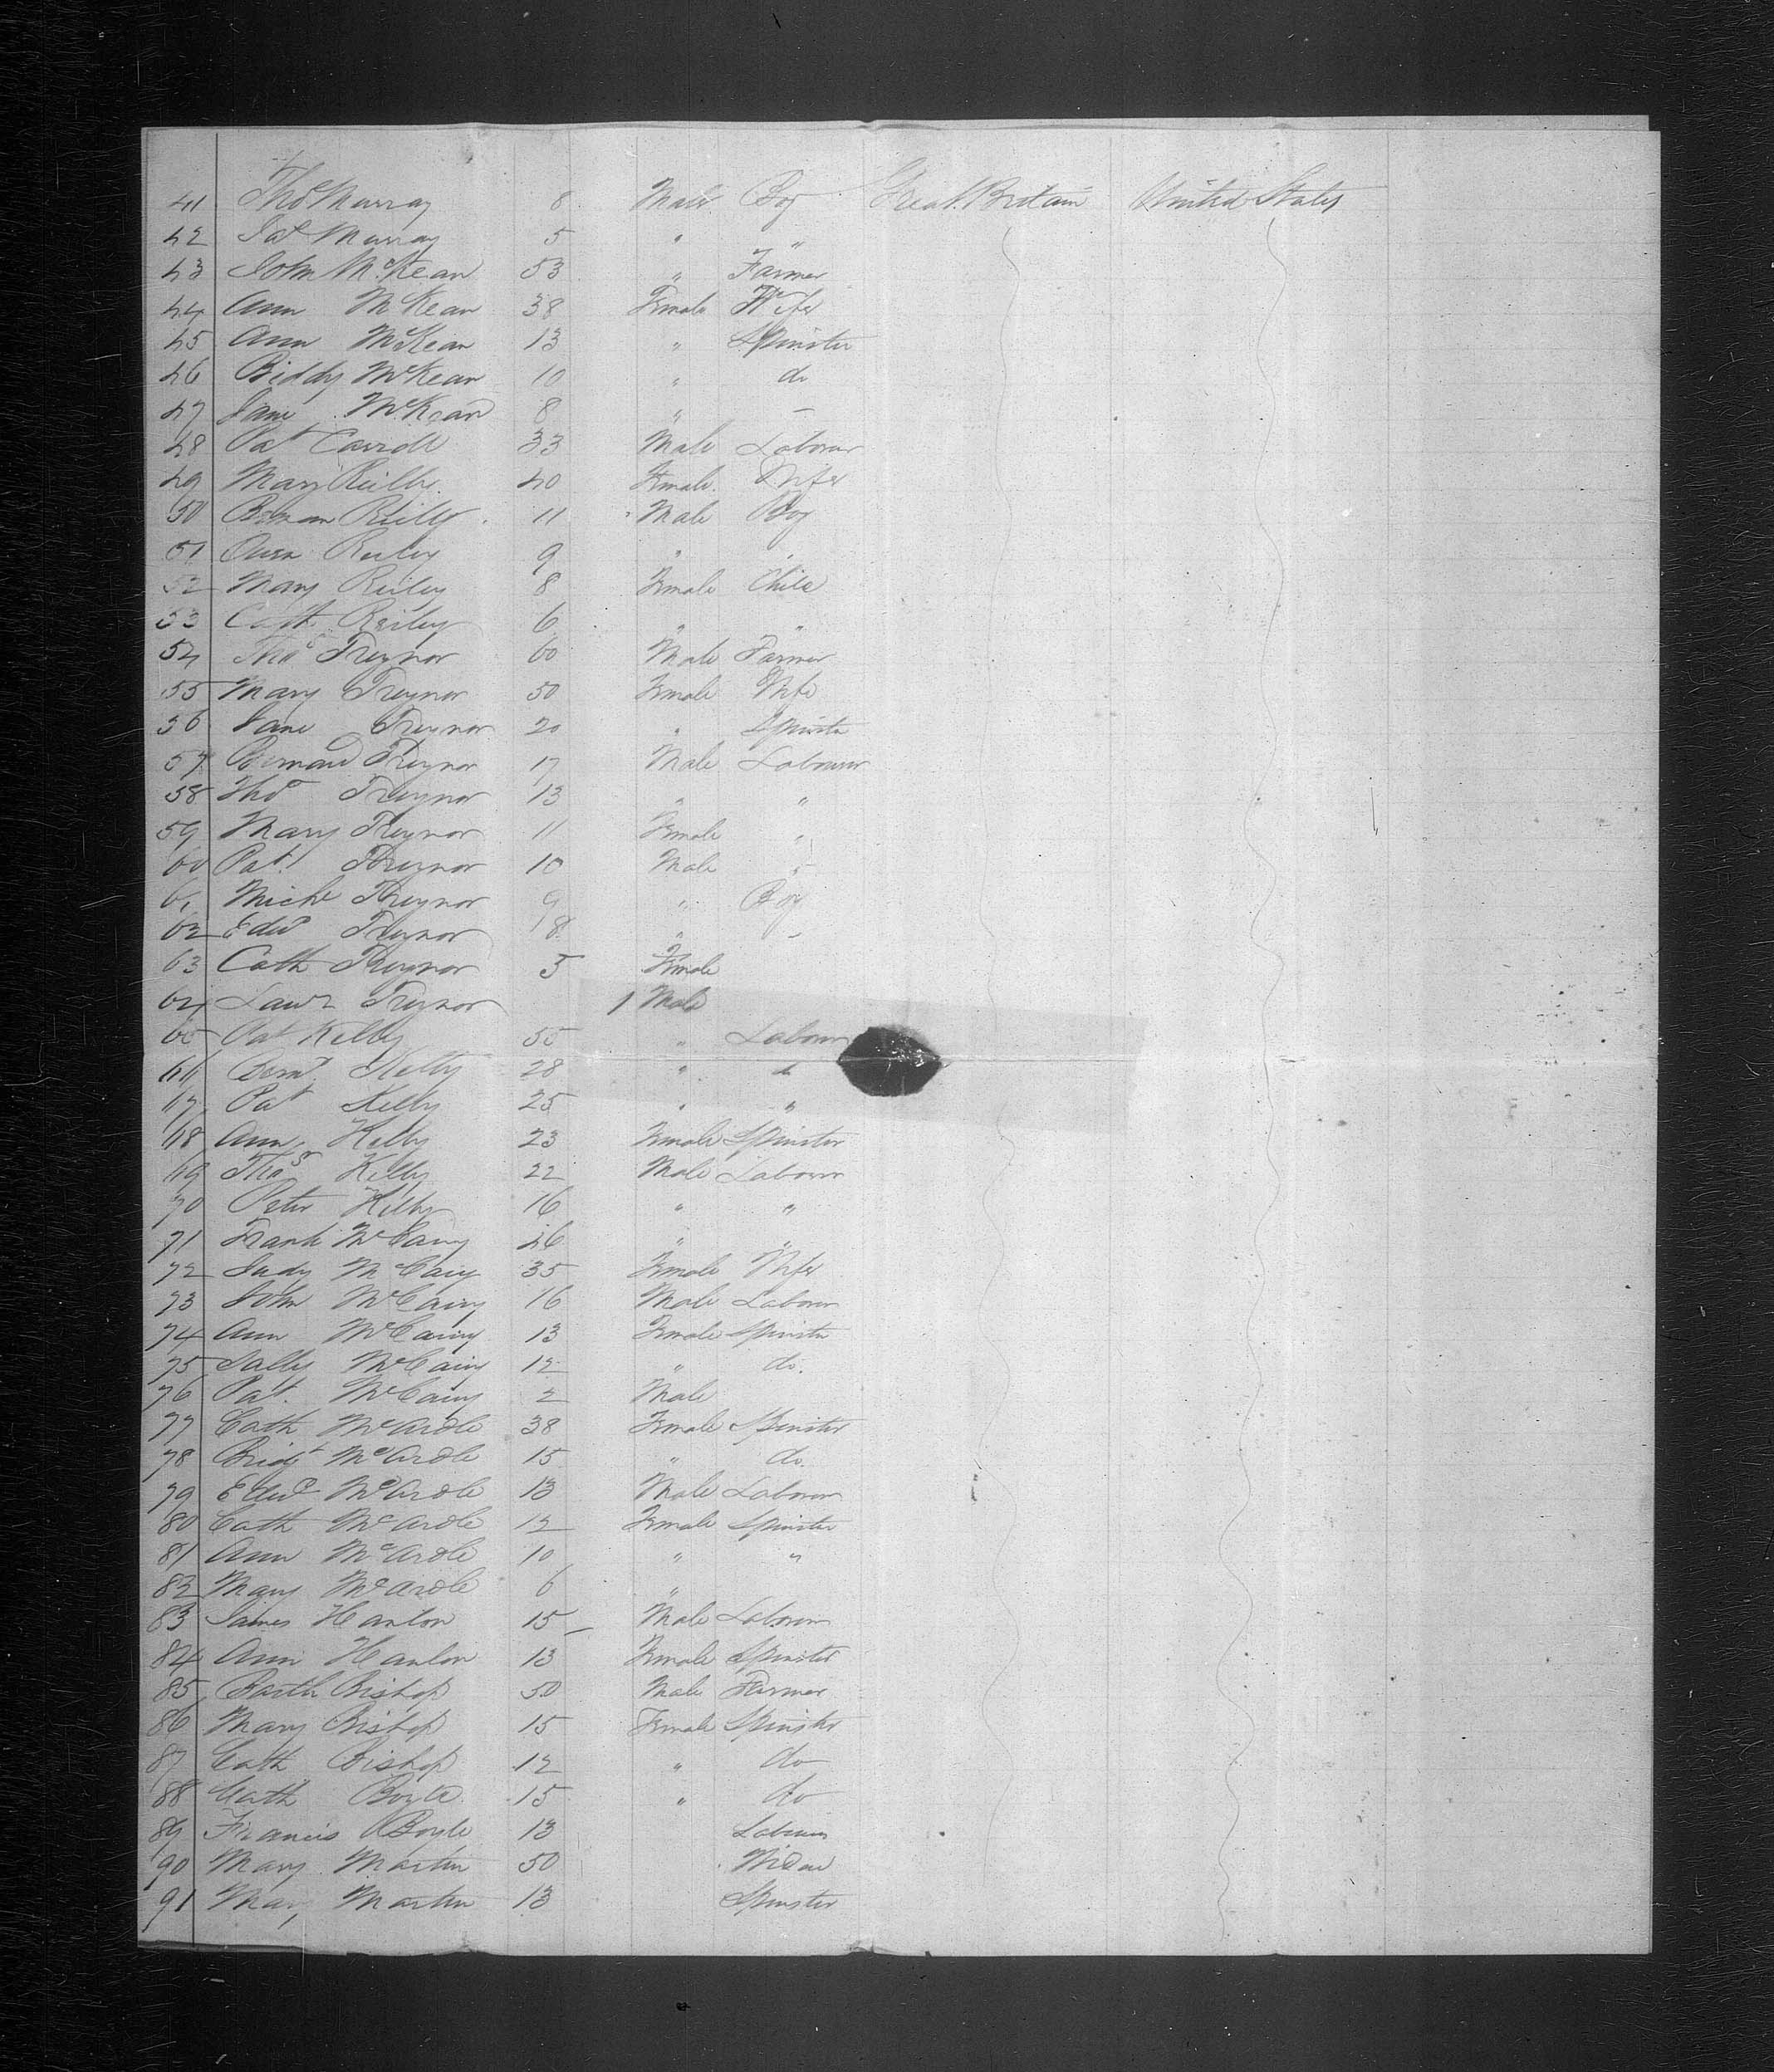 41 Thos Murray 8 Male Boy Great Britain United States
42 Pat Murray 5 " "
43 John McKean 53 " Farmer
44 Ann McKean 38 Female Wife
45 Ann McKean 13 " Spinster
46 Biddy McKean 10 " do
47 Jane McKean 8 " –
48 Pat Carroll 33 Male Labourer
49 Mary Reilly 40 Female Wife
50 Reilly 11 Male Boy
51 Owen Reiley 9 " "
52 Mary Reiley 8 Female Child
53 Cath Reiley 6 " "
54 Thos Treynor 60 Male Farmer
55 Mary Treynor 50 Female Wife
56 Jane Treynor 20 " Spinster
57 Bernard Treynor 17 Male Labourer
58 Thos Treynor 13 " "
59 Mary Treynor 11 Female "
60 Pat Treynor 10 Male "
61 Michl Treynor 9 " Boy
62 Edwd Treynor 8 " "
63 Cath Treynor 5 Female
64 Lawr Treynor 1 Male
65 Pat Kelly 55 " Labour
66 Bernd Kelly 28 " do
67 Pat Kelly 25 " "
68 Ann Kelly 23 Female Spinster
69 Thos Kelly 22 Male Labourer
70 Peter Kelly 16 " "
71 Frank 46 " "
72 Judy 35 Female Wife
73 John 16 Male Labourer
74 Ann 13 Female Spinster
75 Sally 12 " do.
76 Pat. 2 Male
77 Cath McArdle 38 Female Spinster
78 Bridt McArdle 15 " do.
79 Edwd McArdle 13 Male Labourer
80 Cath McArdle 12 Female Spinster
81 Ann McArdle 10 " "
82 Mary McArdle 6 "
83 James Hanlon 15 Male Labourer
84 Ann Hanlon 13 Female Spinster
85 Barth Bishop 50 Male Farmer
86 Mary Bishop 15 Female Spinster
87 Cath Bishop 12 " do
88 Cath Boyle 15 " do
89 Francis Boyle 13 Labourer
90 Mary Martin 50 Widow
91 Mary Martin 13 Spinster